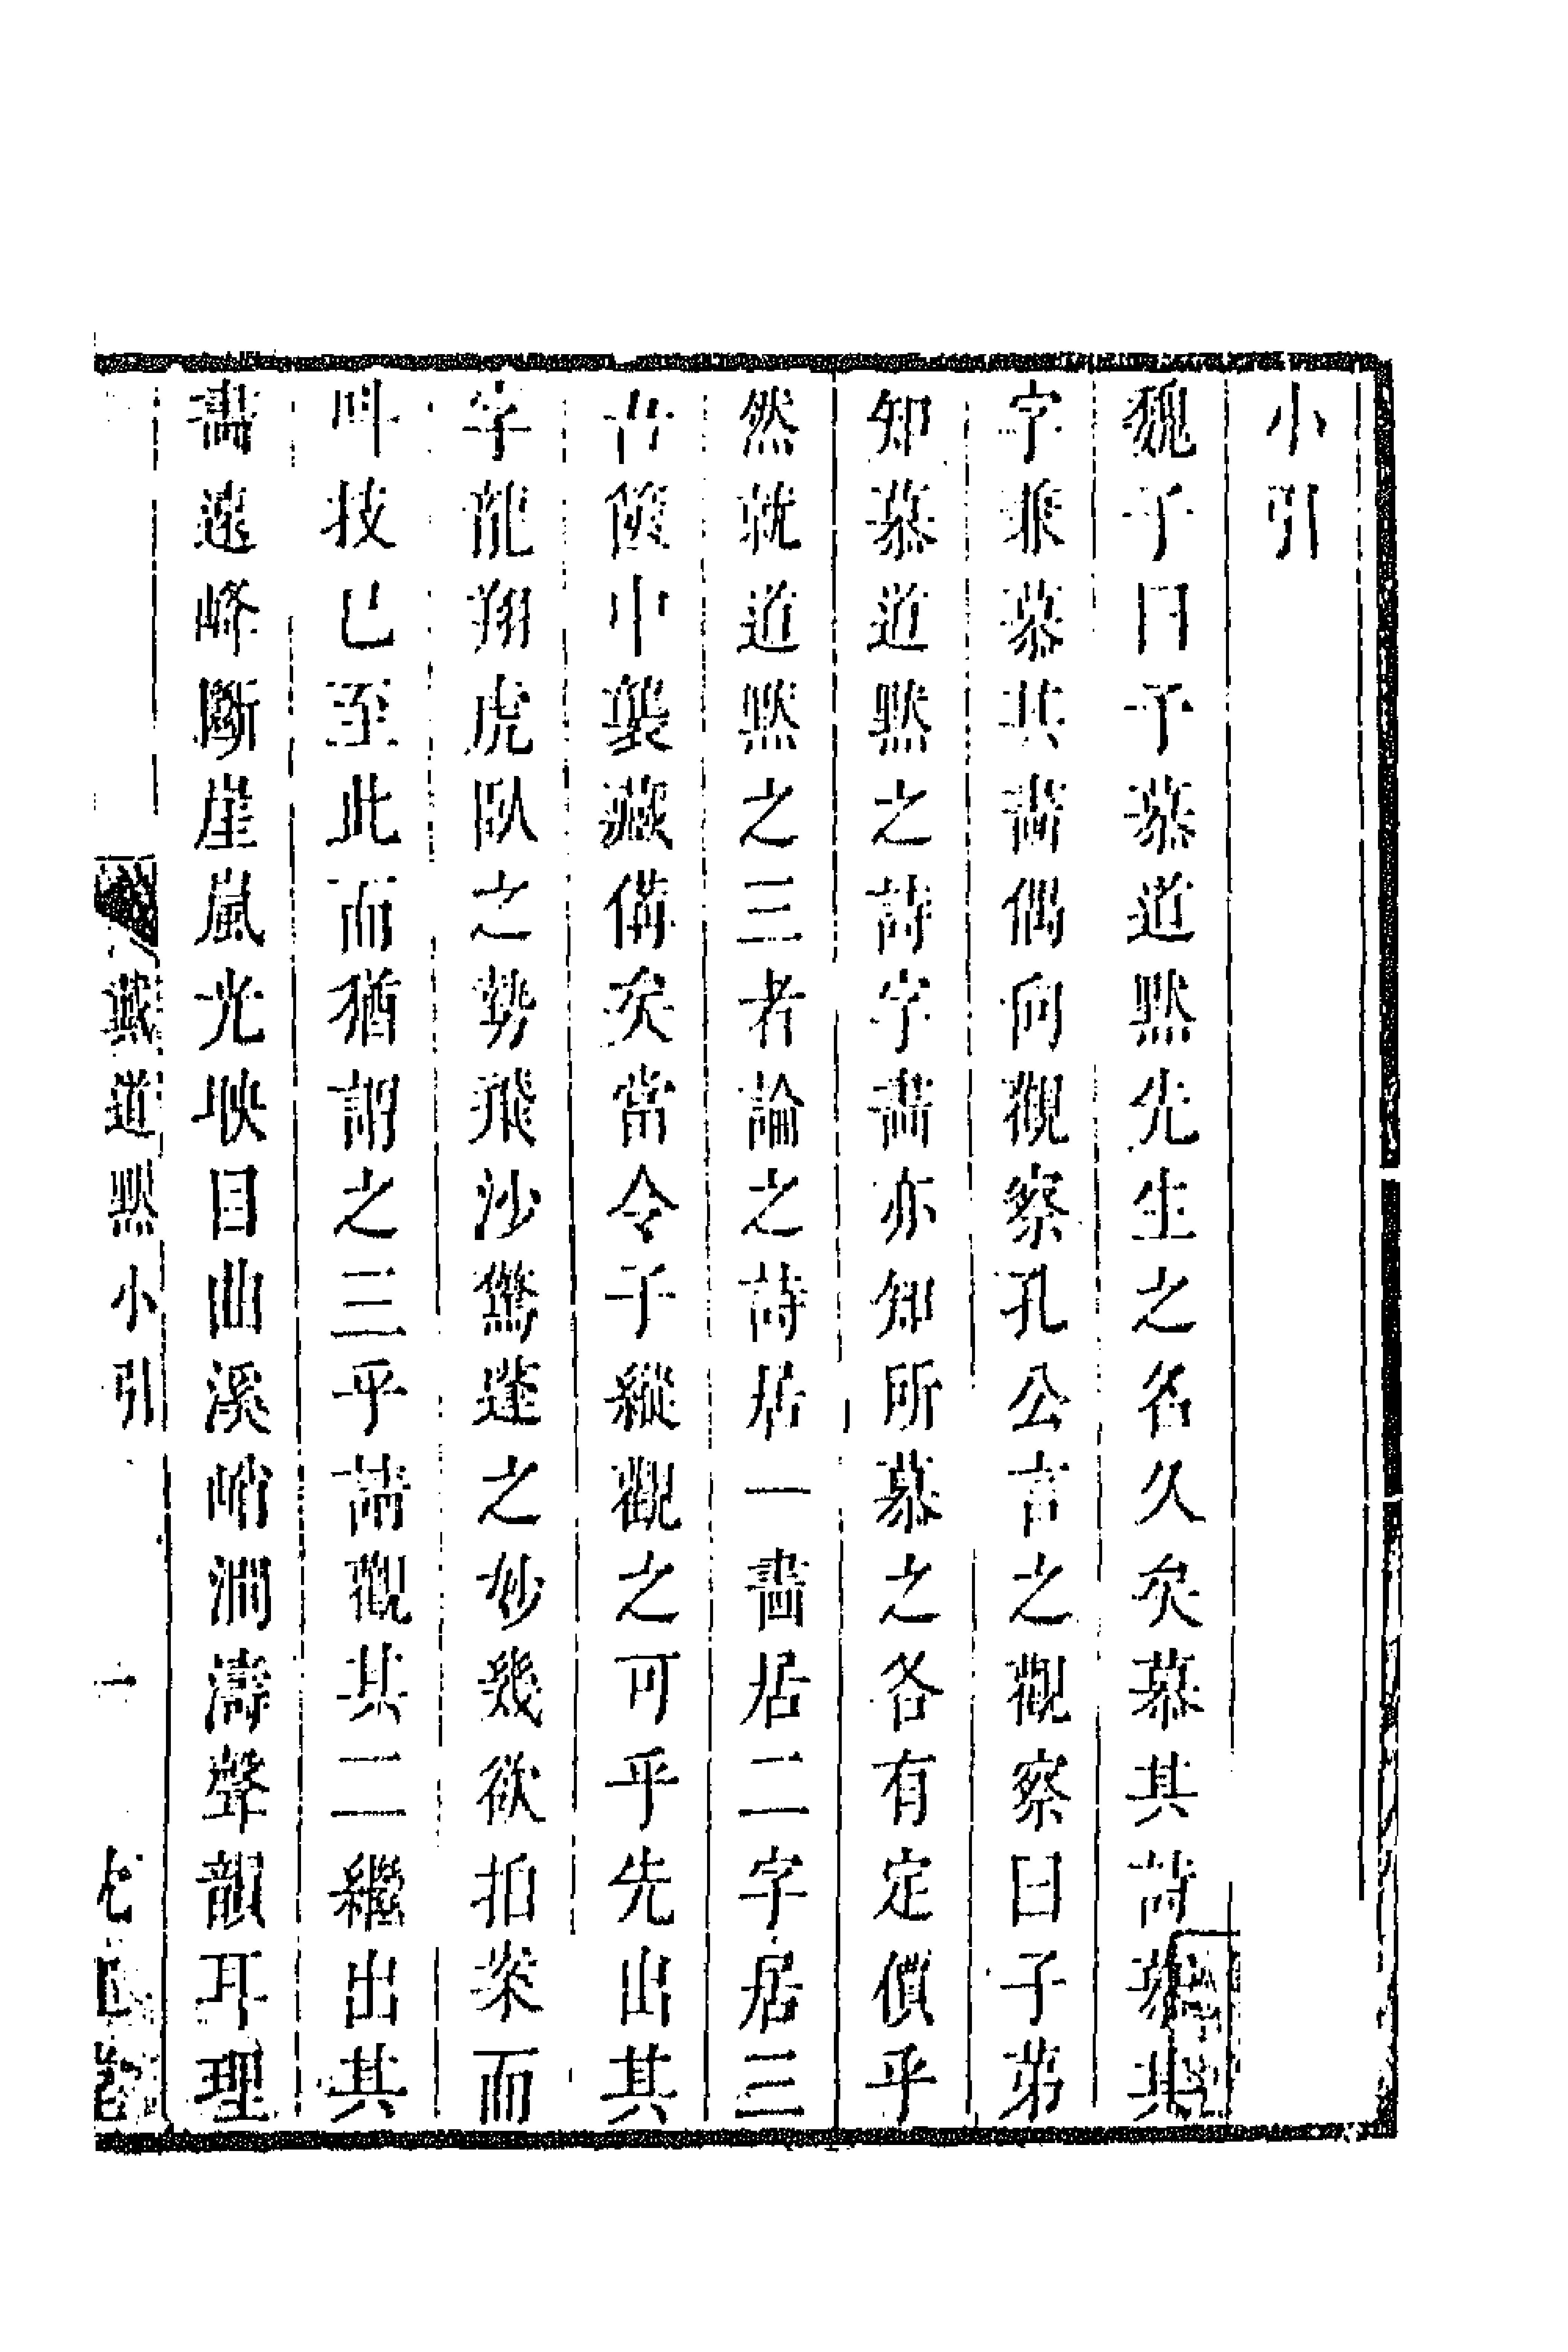 小引
魏子曰予慕道默先生之名久矣慕其詩慕其
字兼慕其畵偶向觀察孔公言之觀察曰子苐
知慕道默之詩字畵亦知所慕之各有定價乎
然就道默之三者論之詩居一畵居二字居三
古篋中襲藏備矣當令子縱觀之可乎先出其
字龍翔虎臥之勢飛沙驚蓬之妙幾欲拍案而
叫技已至此而猶謂之三乎請觀其二繼出其
畵遠峰斷崖嵐光映目曲溪峭澗濤聲韻耳理
戴道默小引
一